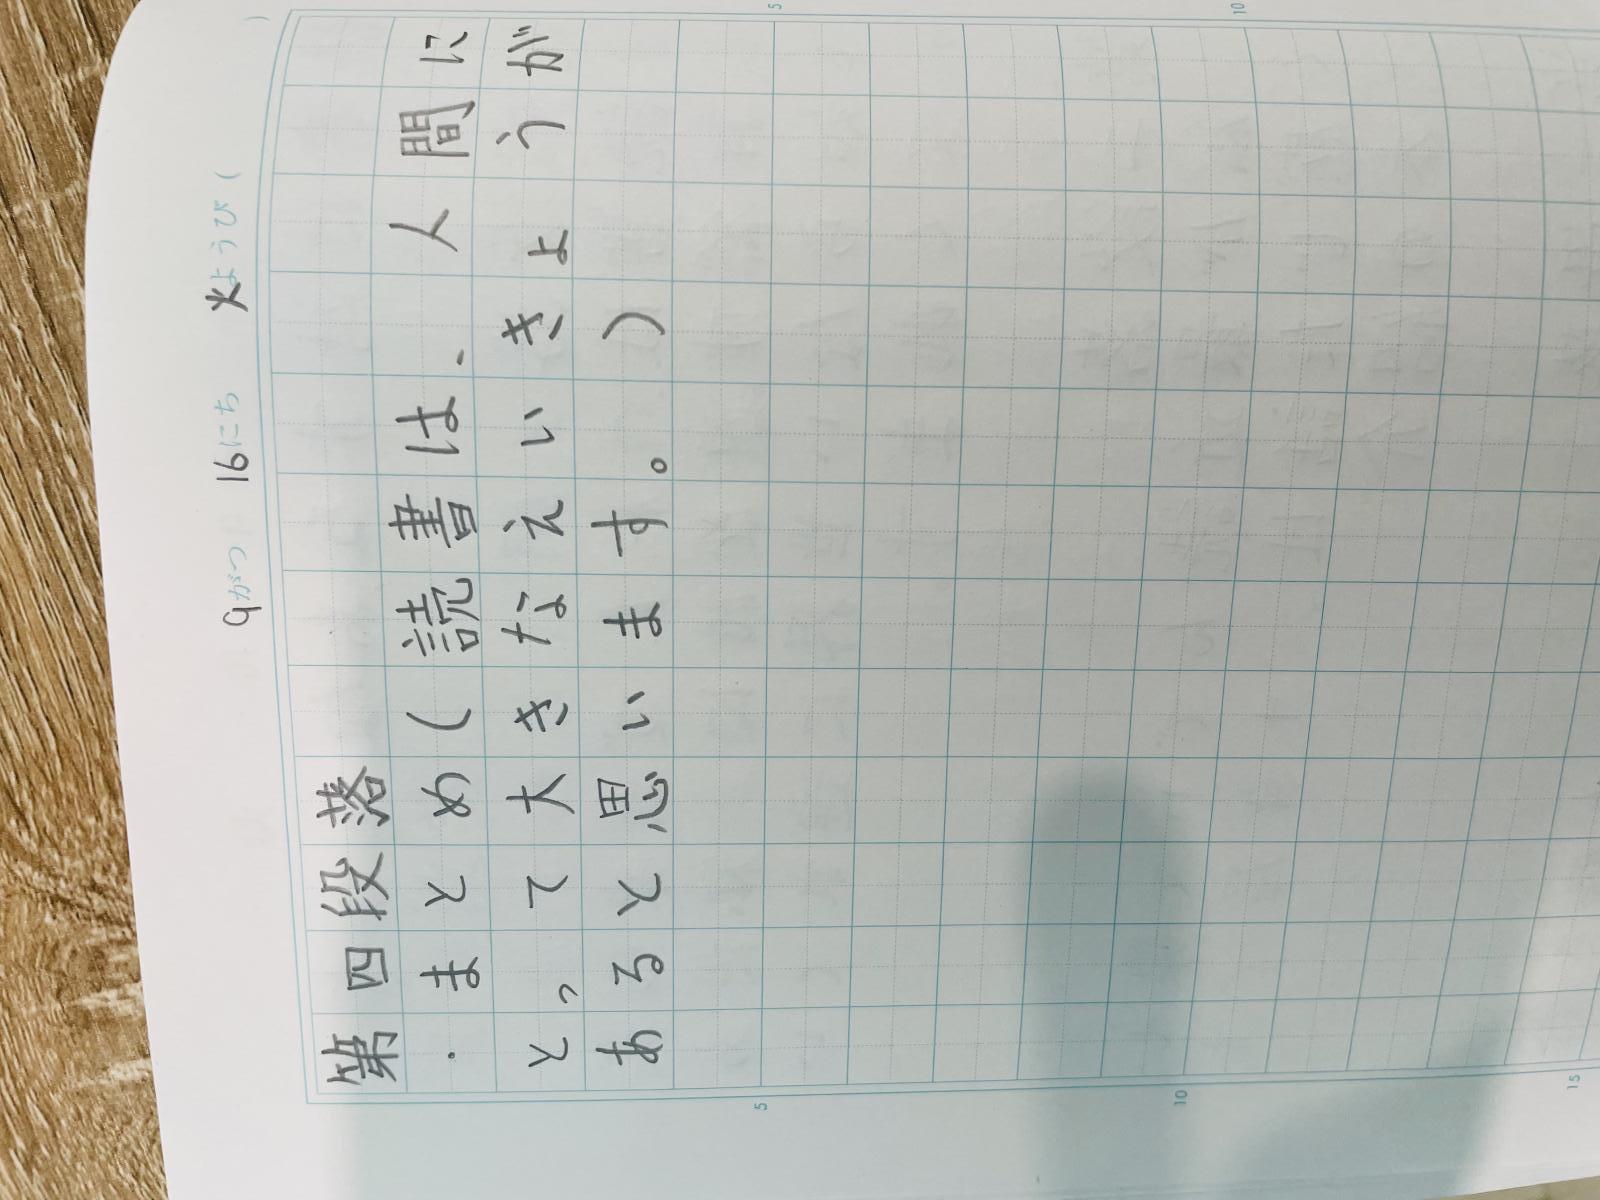 9がつ 16にち 火ようび( )
第四段落
・まとめ(読書は、人間に
とって大きなえいきょうが
あると思います。)
5
10
5
10
15